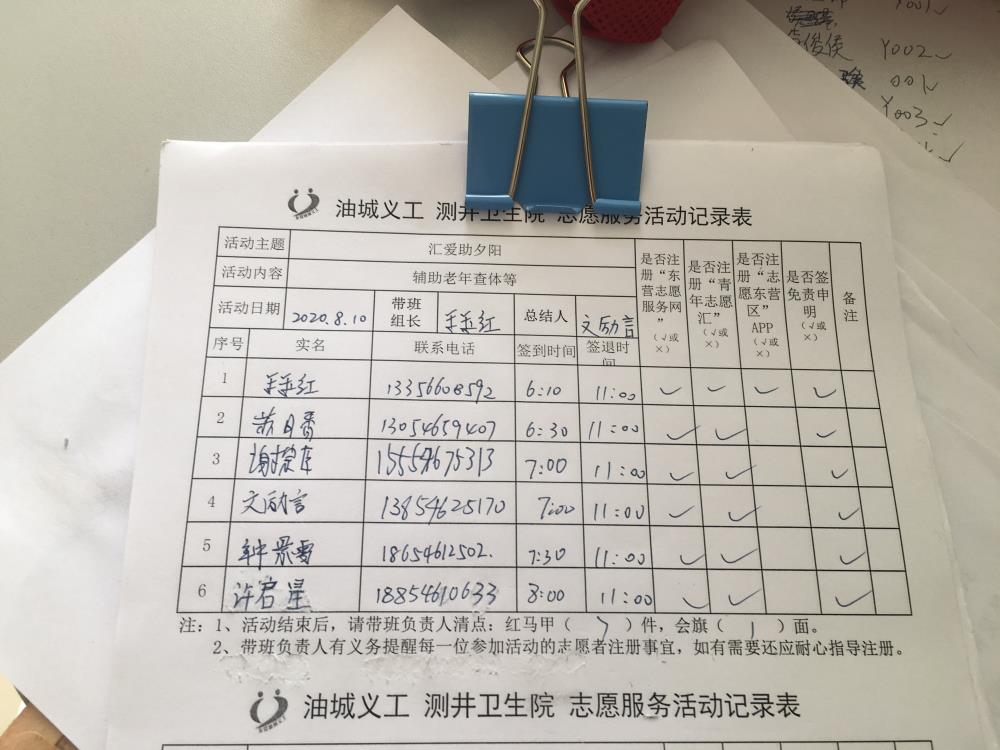 Y001✓
俊侯 Y002✓
001✓
Y003✓
油城义工 测井卫生院 志愿服务活动记录表
活动主题 汇爱助夕阳 是否注册“东营志愿服务网”(√或×) 是否注册“青年志愿汇”(√或×) 是否注册“志愿东营区”APP(√或×) 是否签免责申明(√或×) 备注
活动内容 辅助老年查体等
活动日期 2020.8.10 带班组长 红 总结人 文励言
序号 实名 联系电话 签到时间 签退时间
1 红 13356608592 6:10 11:00 ✓ ✓ ✓ ✓
2 13054659407 6:30 11:00 ✓ ✓ ✓
3 谢 15554675313 7:00 11:00 ✓ ✓ ✓
4 文励言 13854625170 7:00 11:00 ✓ ✓ ✓
5 钟景雪 18654612502. 7:30 11:00 ✓ ✓ ✓
6 许君星 18854610633 8:00 11:00 ✓ ✓ ✓
注：1、活动结束后，请带班负责人清点：红马甲（ 7 ）件，会旗（ 1 ）面。
2、带班负责人有义务提醒每一位参加活动的志愿者注册事宜，如有需要还应耐心指导注册。
油城义工 测井卫生院 志愿服务活动记录表